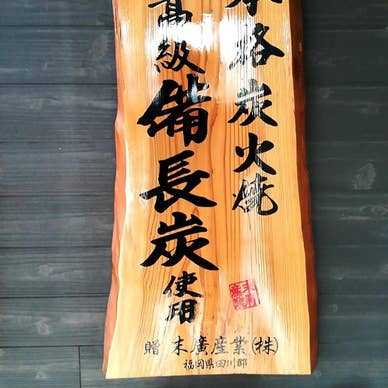 本格炭火焼
高級備長炭使用
贈 末廣産業(株)
福岡県田川郡